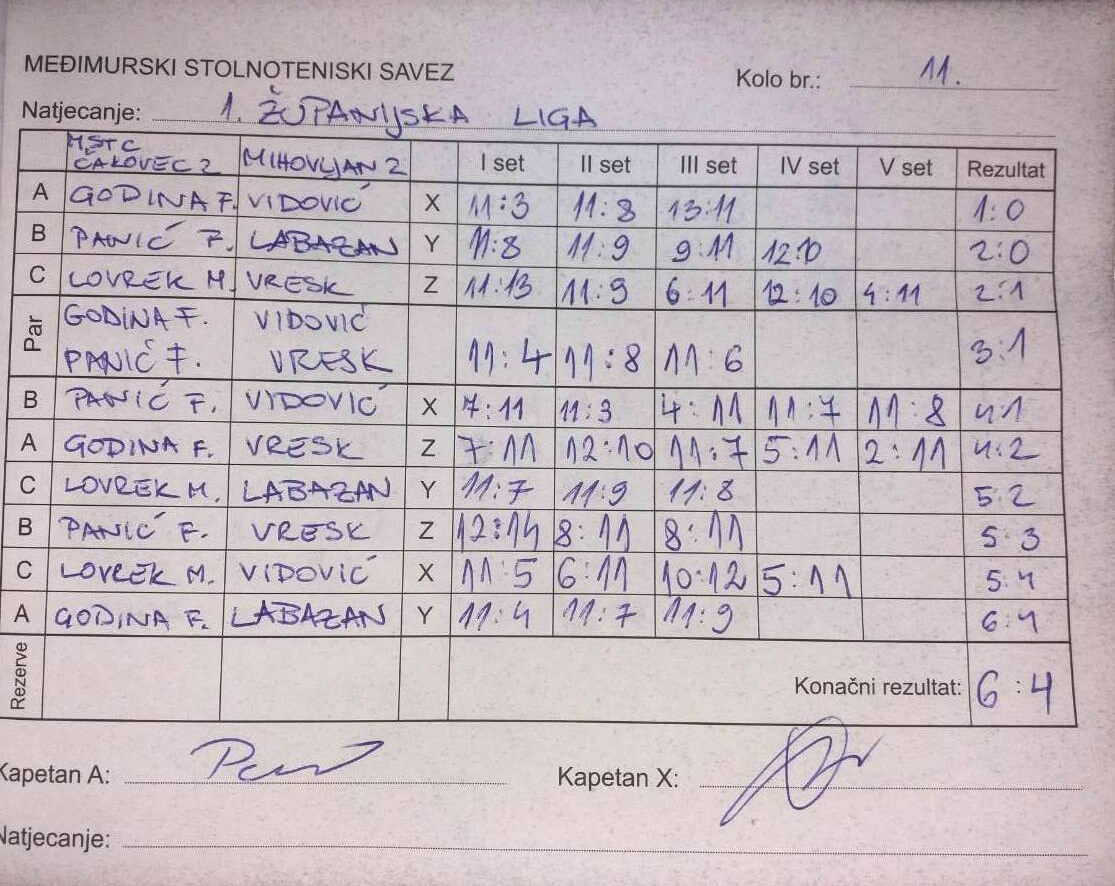 MEĐIMURSKI STOLNOTENISKI SAVEZ
Kolo br.: 11.
Natjecanje: 1. ŽUPANIJSKA LIGA
MSTC ČAKOVEC 2 MIHOVLJAN 2 I set II set III set IV set V set Rezultat
A GODINA F. VIDOVIĆ X 11:3 11:8 13:11 1:0
B PANIĆ F. LABAZAN Y 11:8 11:9 9:11 12:10 2:0
C LOVREK M. VRESK Z 11:13 11:9 6:11 12:10 4:11 2:1
Par GODINA F. VIDOVIĆ
PANIĆ F. VRESK 11:4 11:8 11:6 3:1
B PANIĆ F. VIDOVIĆ X 7:11 11:3 4:11 11:7 11:8 4:1
A GODINA F. VRESK Z 7:11 12:10 11:7 5:11 2:11 4:2
C LOVREK M. LABAZAN Y 11:7 11:9 11:8 5:2
B PANIĆ F. VRESK Z 12:14 8:11 8:11 5:3
C LOVREK M. VIDOVIĆ X 11:5 6:11 10:12 5:11 5:4
A GODINA F. LABAZAN Y 11:4 11:7 11:9 6:4
Rezerve Konačni rezultat: 6:4
Kapetan A: Kapetan X:
Natjecanje: